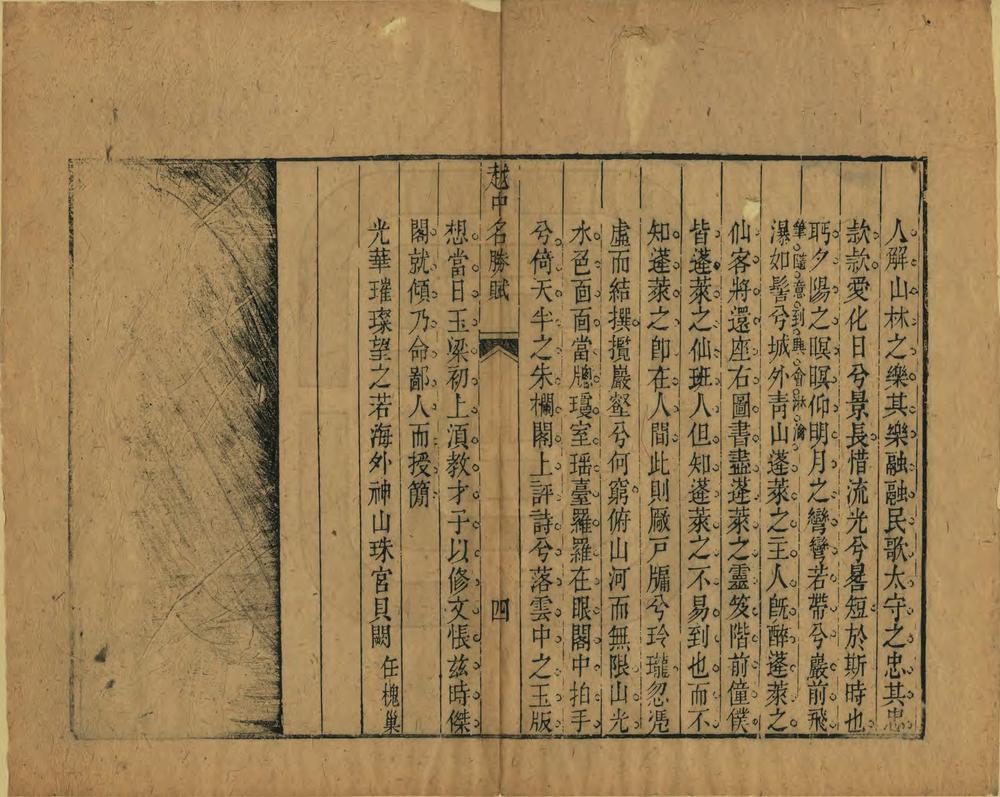 人解山林之樂其樂融融民歌太守之忠其忠
款款愛化日兮景長惜流光兮晷短於斯時也
眄夕陽之暝暝仰明月之彎彎若帶兮巖前飛
筆隨意到興會淋漓
瀑如髻兮城外青山蓬萊之主人旣醉蓬萊之
仙客將還座右圖書盡蓬萊之靈笈階前僮僕
皆蓬萊之仙班人但知蓬萊之不易到也而不
知蓬萊之卽在人間此則厰戸牖兮玲瓏忽凴
虛而結撰攬巖壑兮何窮俯山河而無限山光
水色面面當牕瓊室瑶臺羅羅在眼閣中拍手
兮倚天半之朱欄閣上評詩兮落雲中之玉版
越中名勝賦
四
想當日玉梁初上湏敎才子以修文悵兹時傑
閣就傾乃命鄙人而授簡
光華璀璨望之若海外神山珠宮貝闕 任槐巢